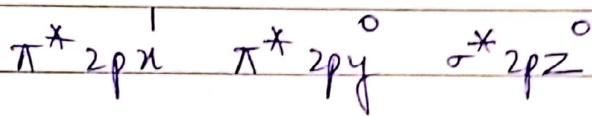 π* 2px¹ π* 2py⁰ σ* 2pz⁰